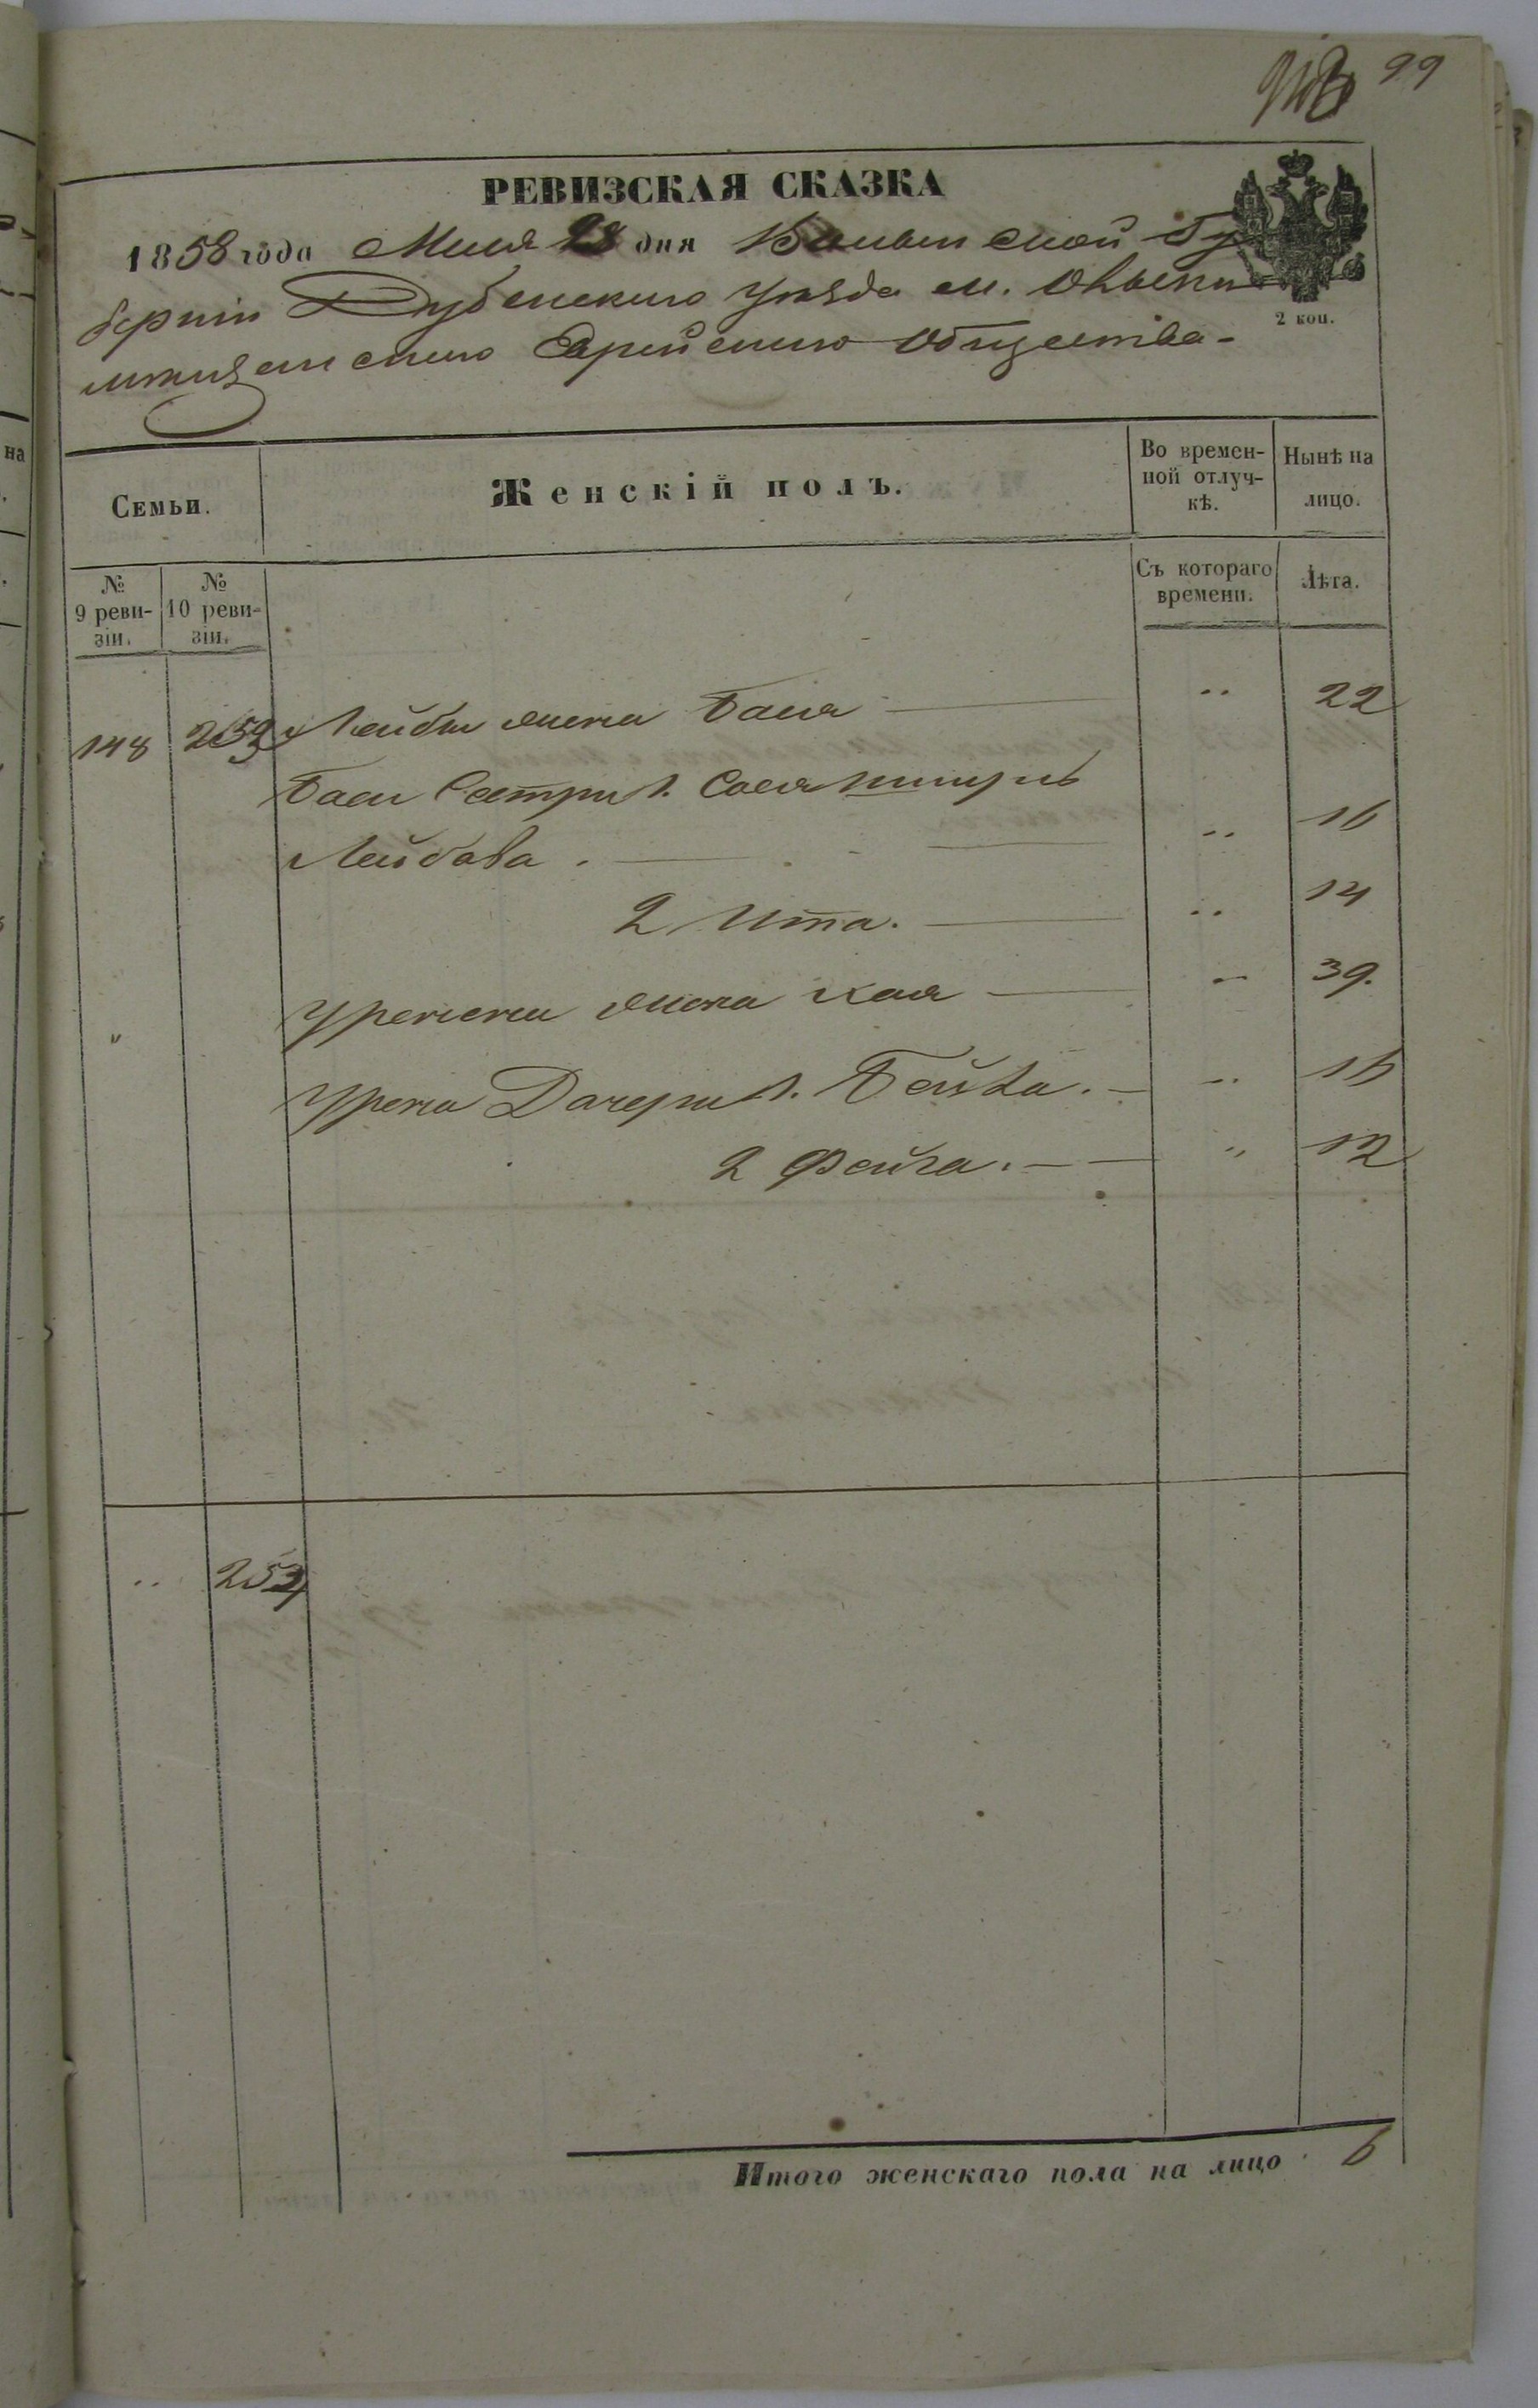 99
РЕВИЗСКАЯ СКАЗКА
1858 года Мая 28 дня Волынской Гу
берніи Дубенскаго уѣзда м. Олыки
мѣщанскаго Еврейскаго Общества.
2 коп.
Семьи.
Женскій полъ.
Во времен-
ной отлуч-
кѣ.
Нынѣ на
лицо.
№
9 реви-
зіи.
№
10 реви-
зіи.
Съ котораго
времени.
Лѣта.
148 Лейбы жена Бася " 22
Баси Сестры 1. Сося
Лейбова. " 16
2 Ита. " 14
" жена Хая " 39.
Дочери 1. Бейла. " 16
2 Фейга. " 12
"
Итого женскаго пола на лицо 6
на